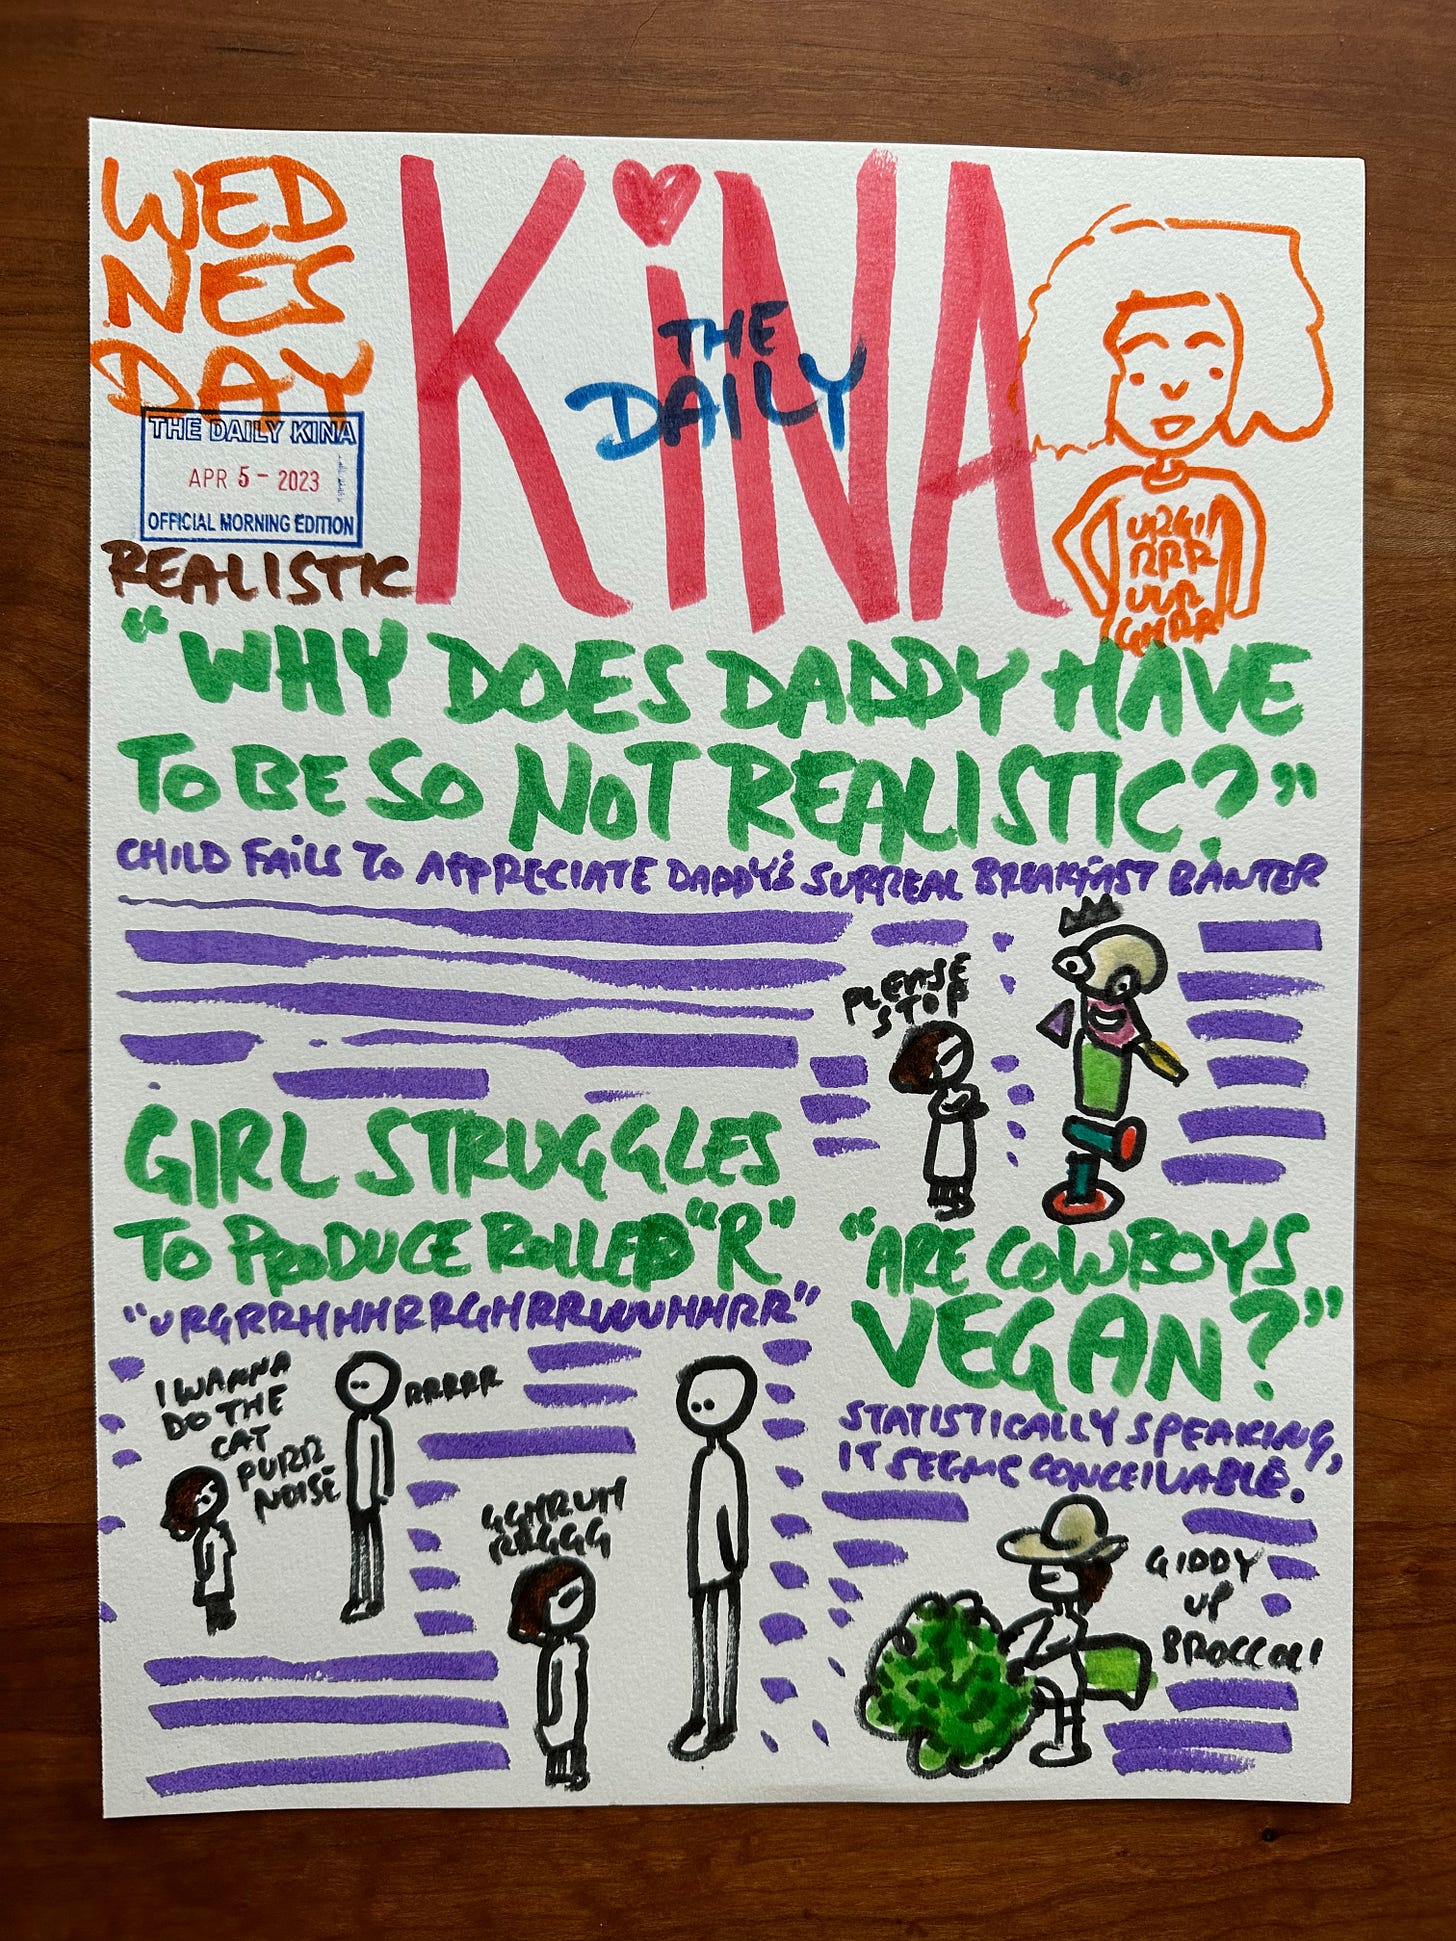 WED
NES
DAY
THE DAILY KINA
APR 5 - 2023
OFFICIAL MORNING EDITION
REALISTIC
KiNA
THE
DAILY
URGH
RRR
UUR
GHRR
"WHY DOES DADDY HAVE
TO BE SO NOT REALISTIC?"
CHILD FAiLS TO APPRECIATE DADDY'S SURREAL BREAKFAST BANTER
PLEASE
STOP
GIRL STRUGGLES
TO PRODUCE ROLLED "R"
"URGRRHHHRRGHRRWUHHRR"
I WANNA
DO THE
CAT
PURR
NOISE
RRRRR
GGHRUH
RRGGG
"ARE COWBOYS
VEGAN?"
STATISTICALLY SPEAKING,
IT SEEMS CONCEIVABLE.
GIDDY
UP
BROCCOLI